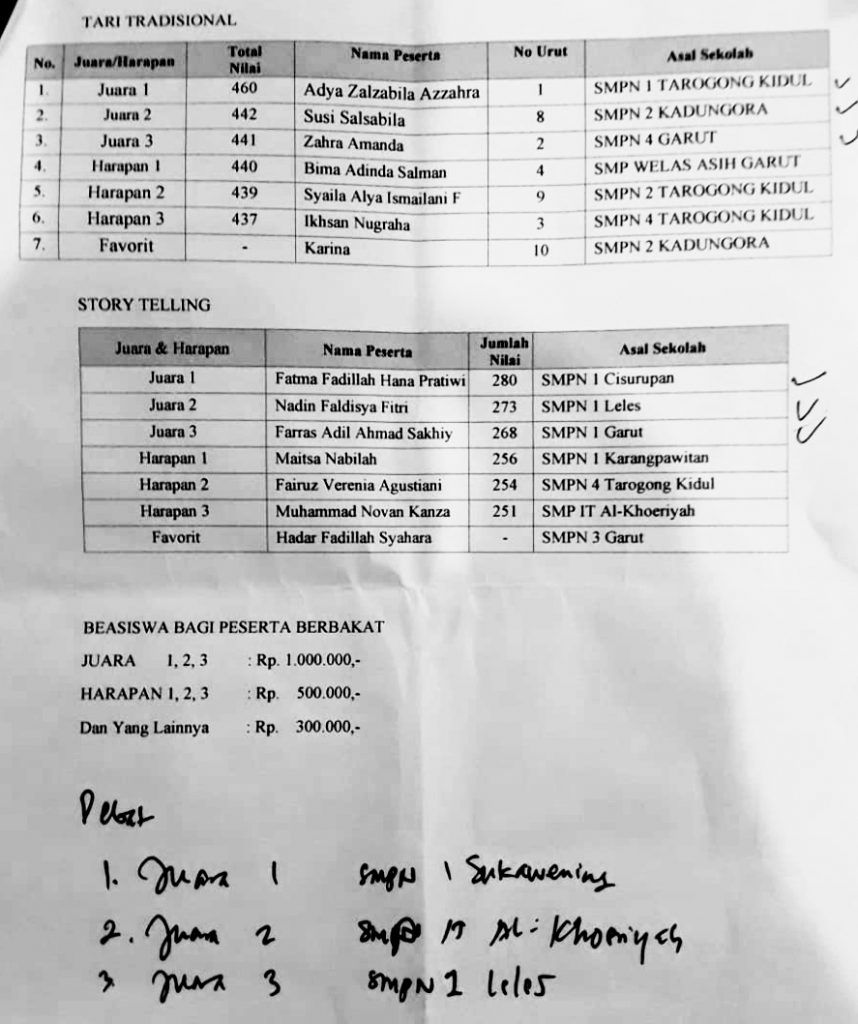 TARI TRADISIONAL
No. Juara/Harapan Total Nilai Nama Peserta No Urut Asal Sekolah
1. Juara 1 460 Adya Zalzabila Azzahra 1 SMPN 1 TAROGONG KIDUL
2. Juara 2 442 Susi Salsabila 8 SMPN 2 KADUNGORA
3. Juara 3 441 Zahra Amanda 2 SMPN 4 GARUT
4. Harapan 1 440 Bima Adinda Salman 4 SMP WELAS ASIH GARUT
5. Harapan 2 439 Syaila Alya Ismailani F 9 SMPN 2 TAROGONG KIDUL
6. Harapan 3 437 Ikhsan Nugraha 3 SMPN 4 TAROGONG KIDUL
7. Favorit - Karina 10 SMPN 2 KADUNGORA
STORY TELLING
Juara & Harapan Nama Peserta Jumlah Nilai Asal Sekolah
Juara 1 Fatma Fadillah Hana Pratiwi 280 SMPN 1 Cisurupan
Juara 2 Nadin Faldisya Fitri 273 SMPN 1 Leles
Juara 3 Farras Adil Ahmad Sakhiy 268 SMPN 1 Garut
Harapan 1 Maitsa Nabilah 256 SMPN 1 Karangpawitan
Harapan 2 Fairuz Verenia Agustiani 254 SMPN 4 Tarogong Kidul
Harapan 3 Muhammad Novan Kanza 251 SMP IT Al-Khoeriyah
Favorit Hadar Fadillah Syahara - SMPN 3 Garut
BEASISWA BAGI PESERTA BERBAKAT
JUARA 1, 2, 3 : Rp. 1.000.000,-
HARAPAN 1, 2, 3 : Rp. 500.000,-
Dan Yang Lainnya : Rp. 300.000,-
Debat
1. Juara 1 SMPN 1 Sukawening
2. Juara 2 SMP IT Al-Khoeriyah
3 Juara 3 SMPN 1 Leles